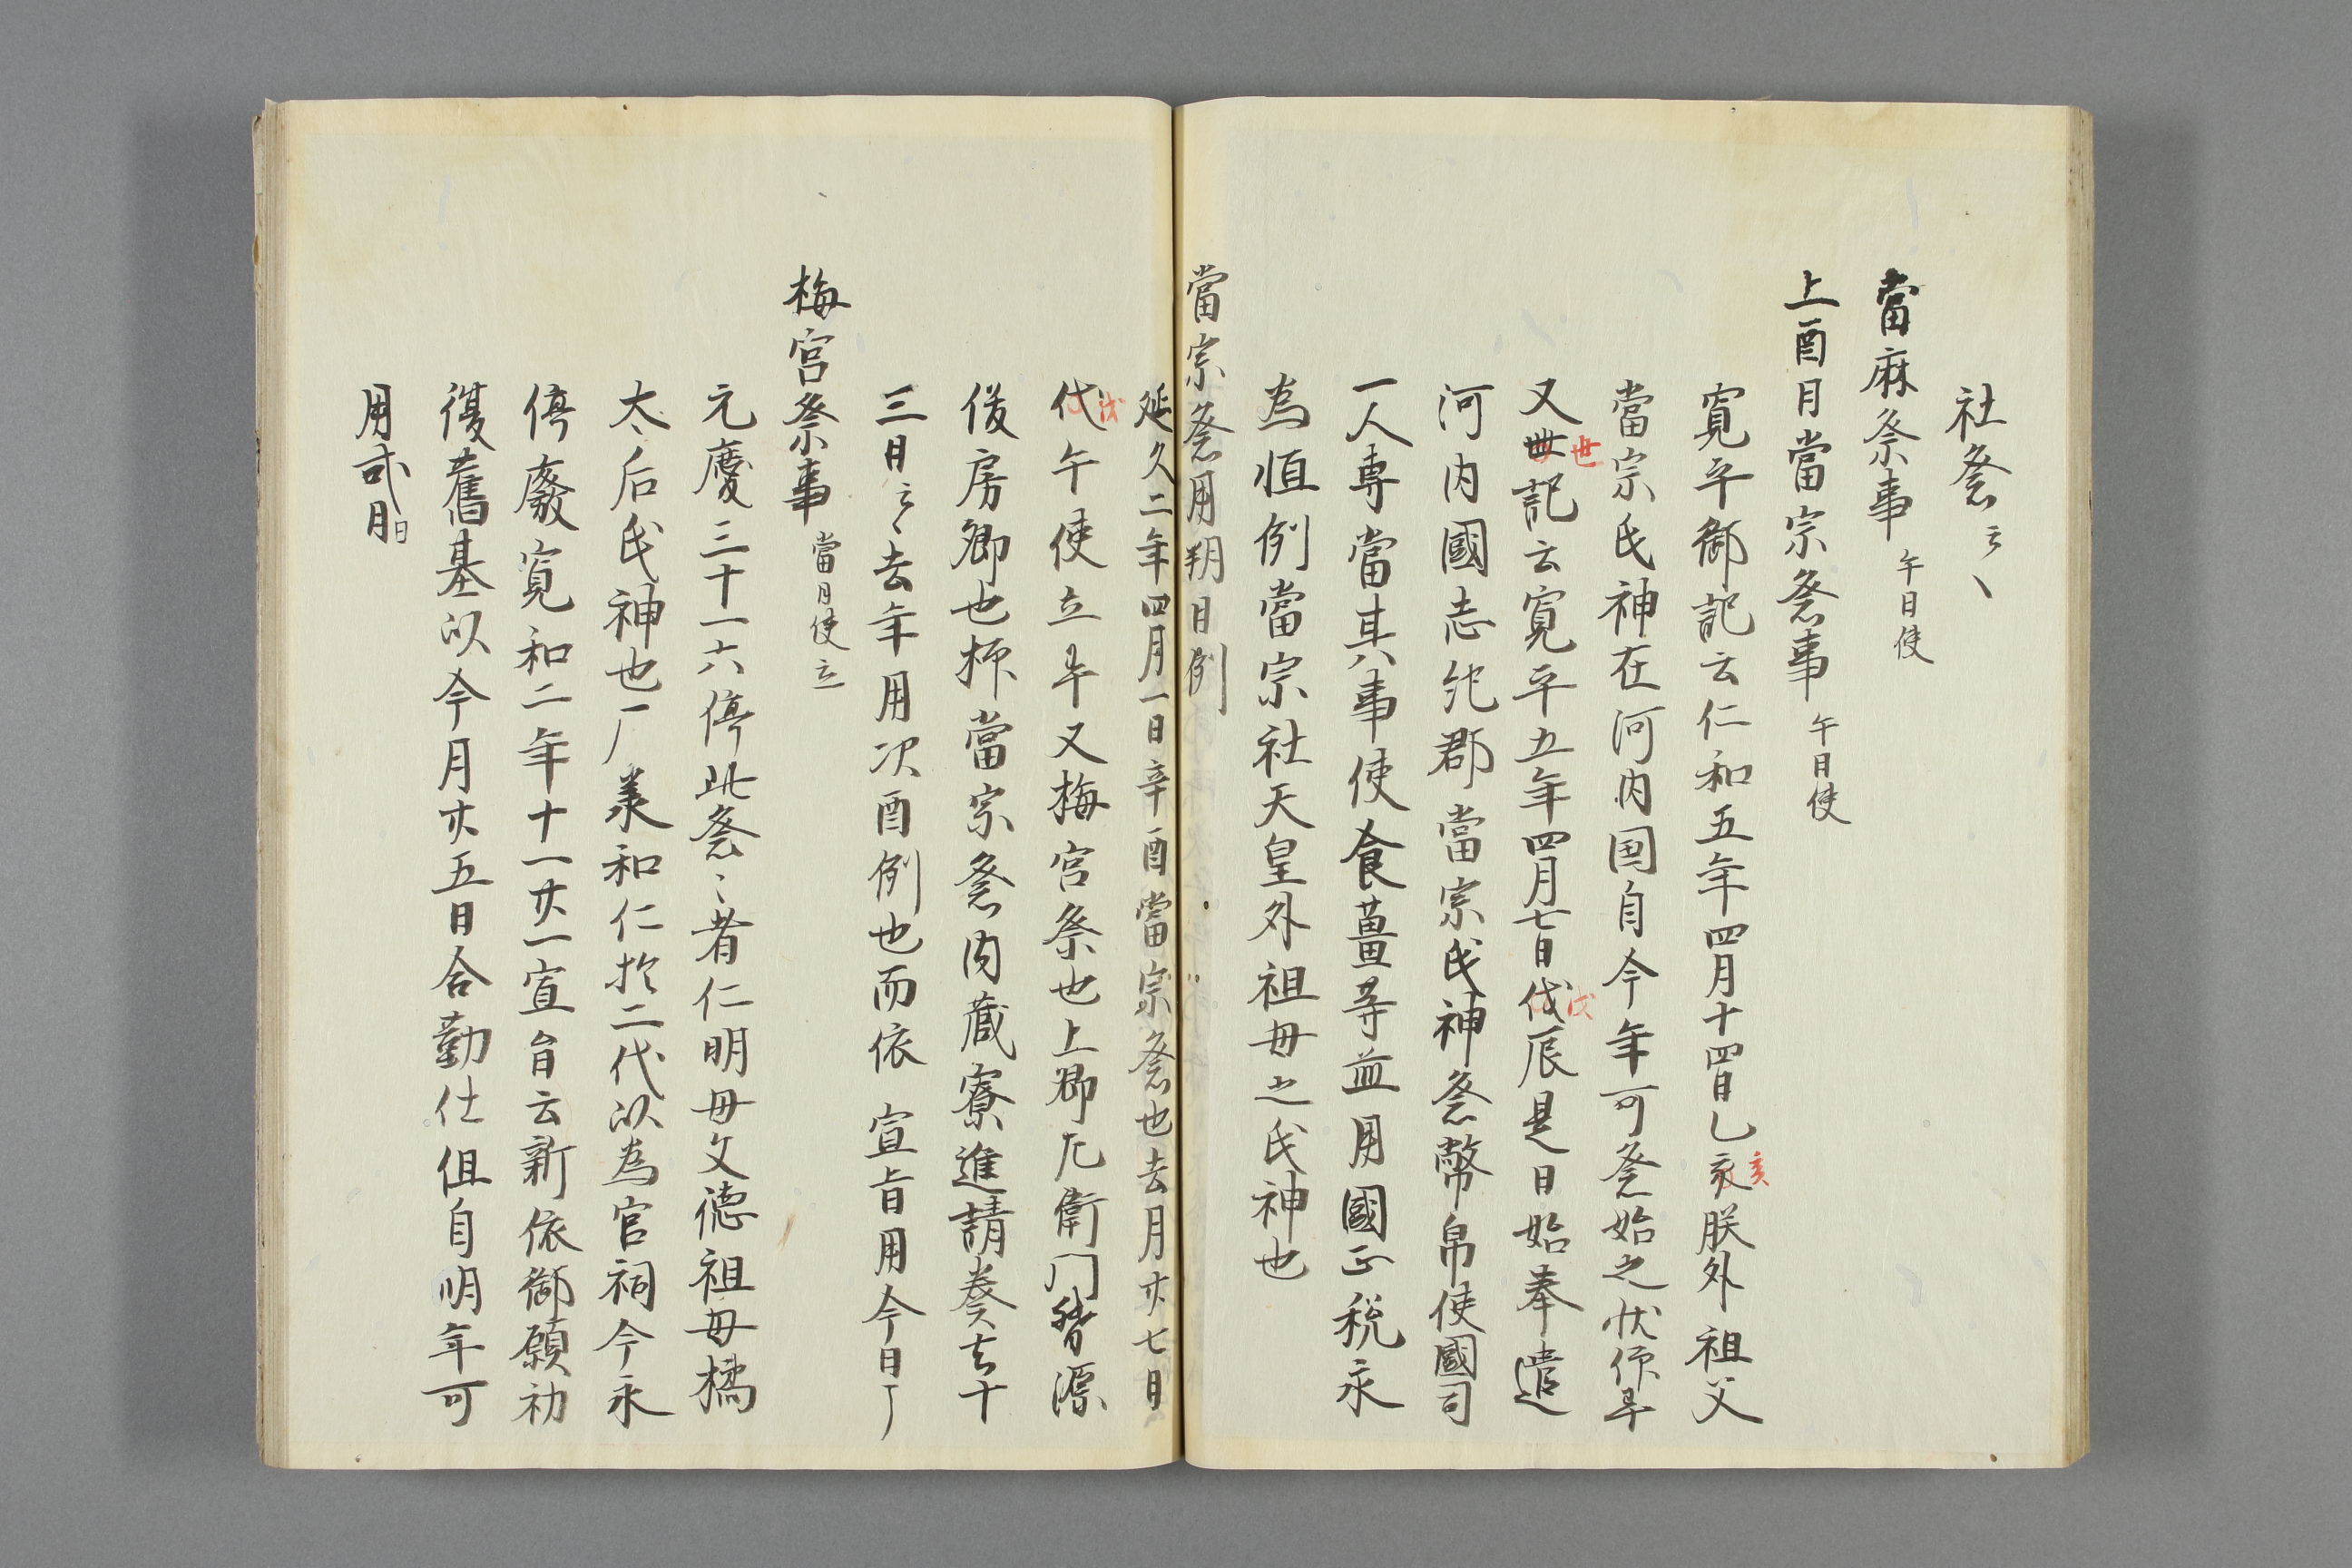 社祭云々
當麻祭事 午日使
上酉月當宗祭事 午日使
寛平御記云仁和五年四月十四日乙亥亥朕外祖父
當宗氏神在河内国自今年可祭始之状仰畢
又世世記云寛平五年四月七日戊戊辰是日始奉遣
河内國志紀郡當宗氏神祭幣帛使國司
一人専當其事使食薑等並用國正税永
為恒例當宗社天皇外祖母之氏神也
當宗祭用朔日例
延久二年四月一日辛酉當宗祭也去月廿七日
戊代午使立年又梅宮祭也上卿左衛門督源
俊房卿也抑當宗祭内蔵寮進請奏去十
三日云々去年用次酉例也而依 宣旨用今日了
梅宮祭事 當日使立
元慶三十一六停此祭々者仁明母文徳祖母橘
太后氏神也厂美和仁於二代以為官祠今永
停廢寛和二年十一廿一宣旨云新依御願初
復舊基以今月廿五日合勤仕但自明年可
用貳月日